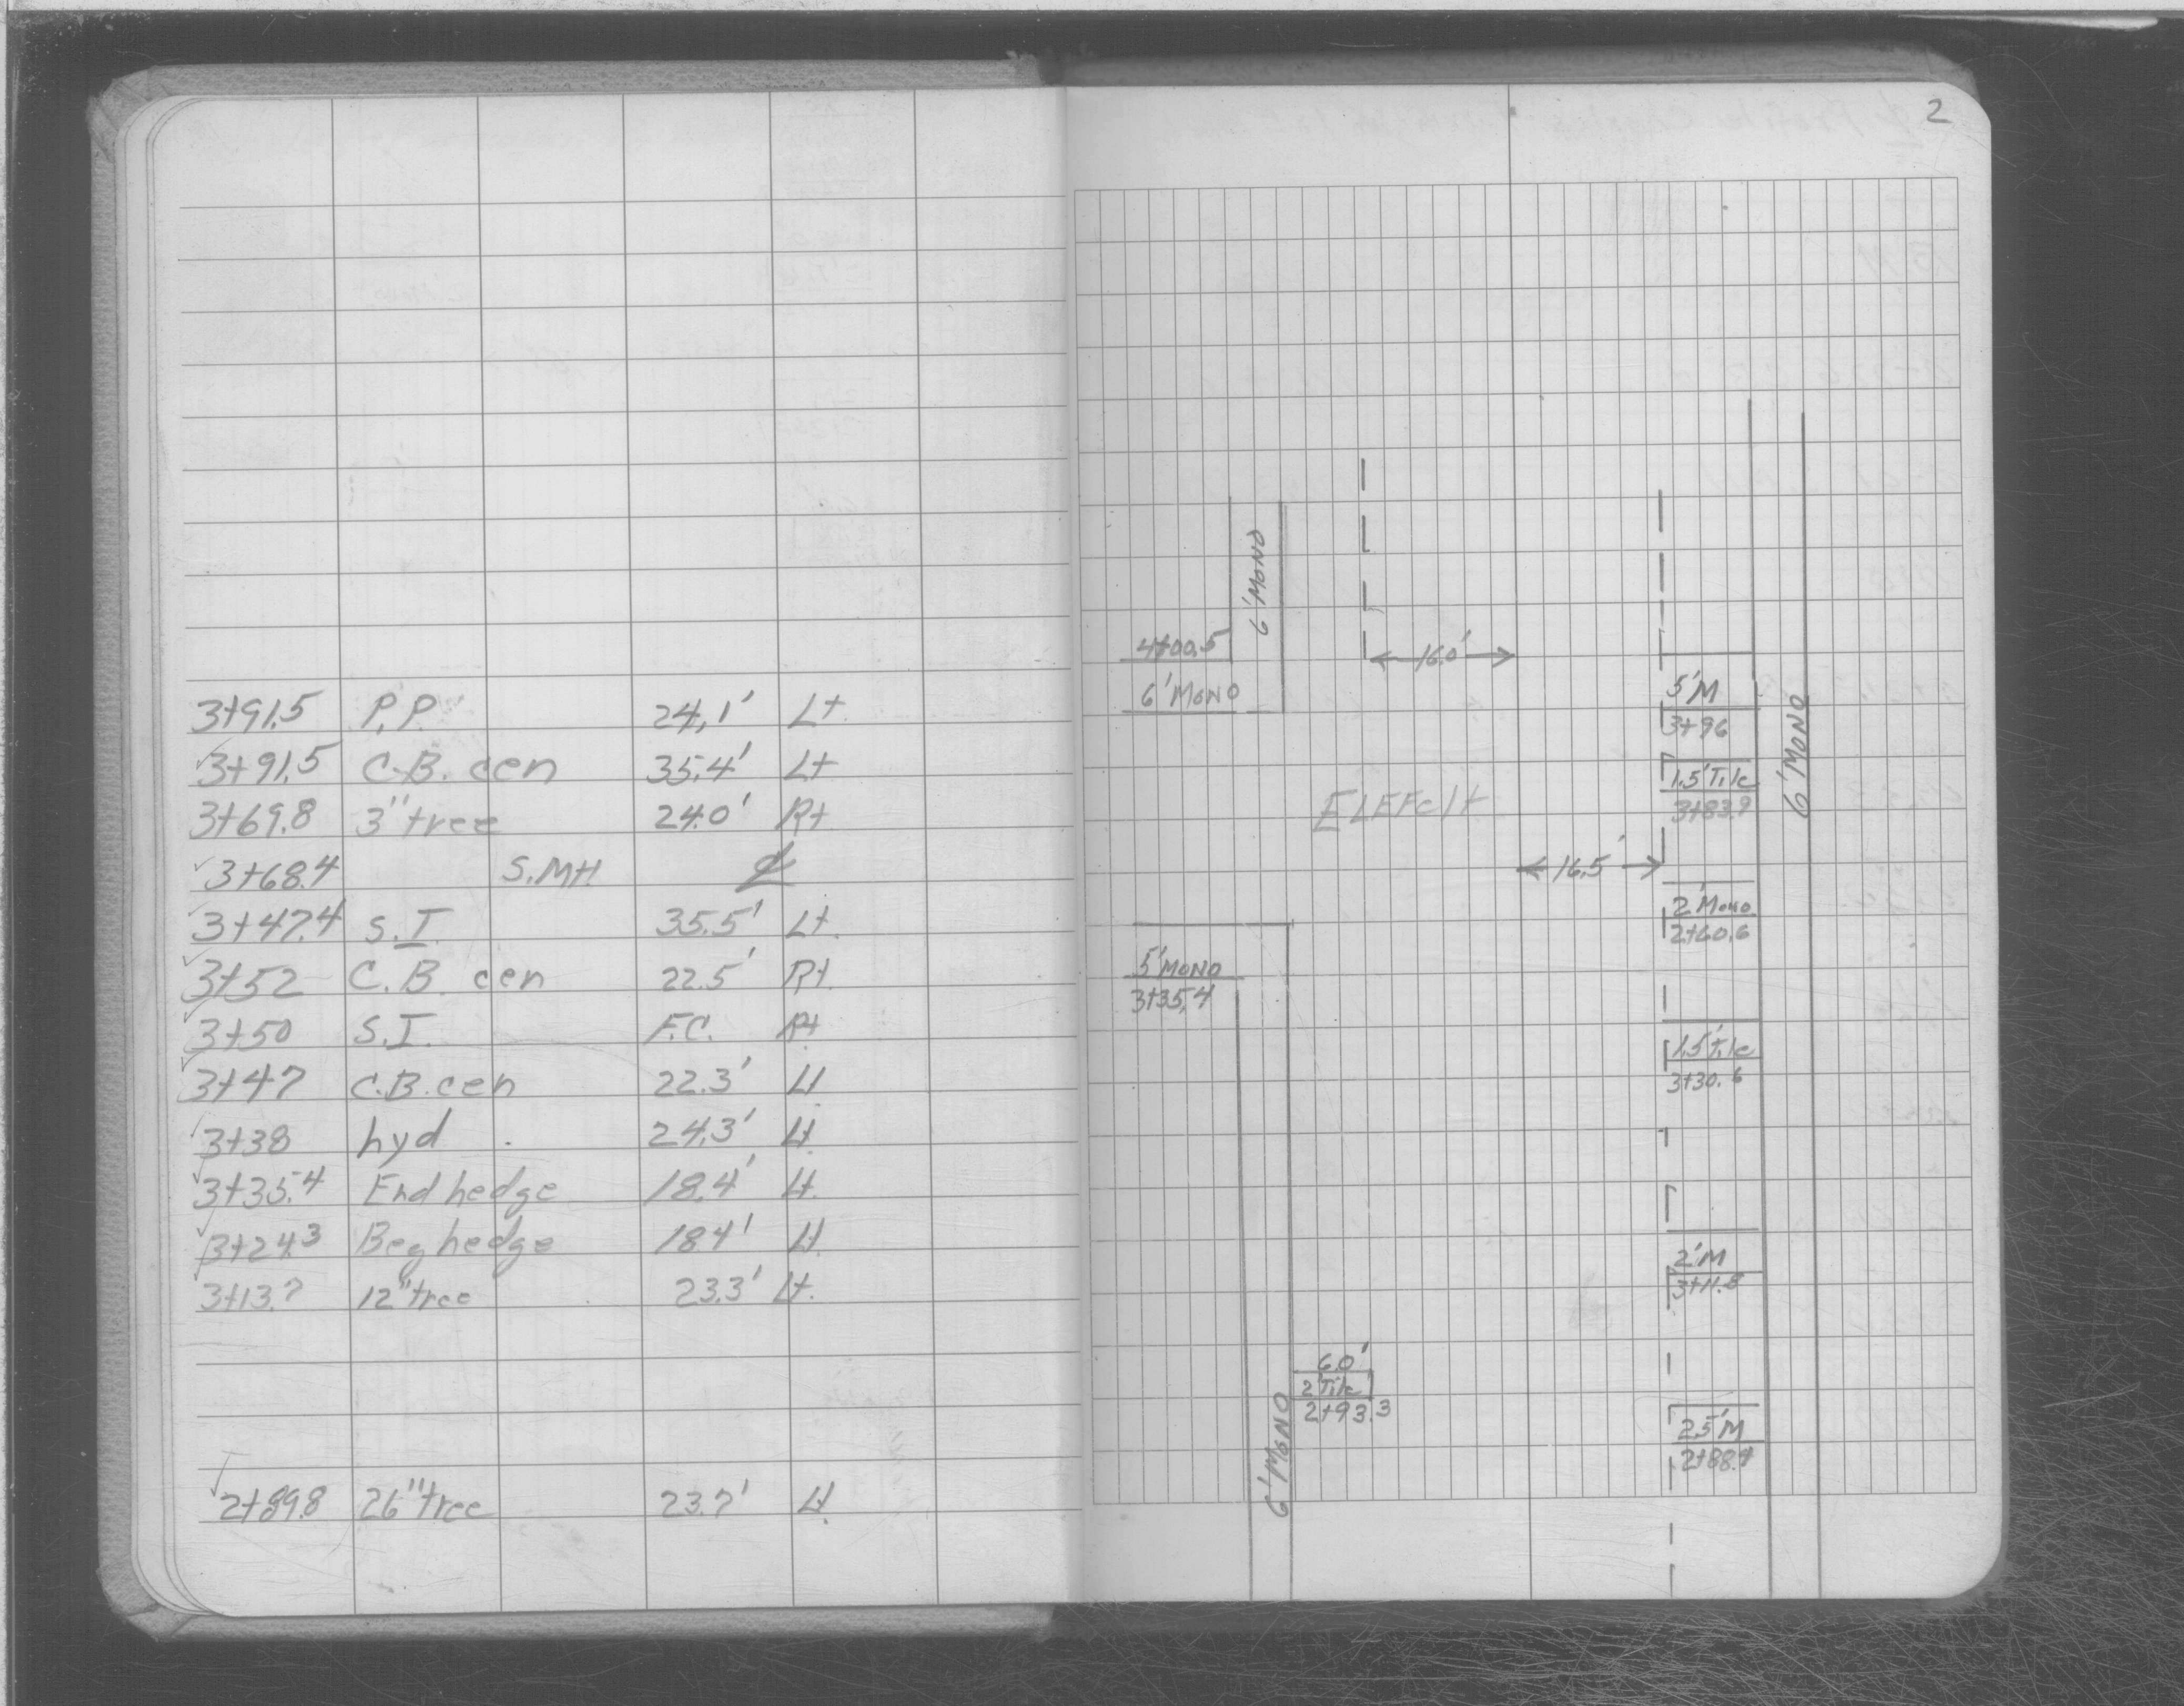 3+91.5 P.P. 24.1' Lt.
3+91.5 C.B. cen 35.4' Lt
3+69.8 3" tree 24.0' Rt
3+68.4 S.MH. ℄
3+47.4 S.I. 35.5' Lt.
3+52 C.B. cen 22.5' Rt.
3+50 S.I. F.C. Rt
3+47 C.B. cen 22.3' Lt.
3+38 hyd. 24.3' Lt.
3+35.4 End hedge 18.4' Lt.
3+24.3 Beg hedge 18.4' Lt.
3+13.7 12" tree 23.3' Lt.
2+89.8 26" tree 23.7' Lt.
2
6' MONO
4+00.5
6' MONO
16.0'
5' M
3+96
6' MONO
1.5' Tile
3+83.9
16.5'
2' Mono
2+60.6
5' MONO
3+35.4
1.5' Tile
3+30.6
2' M
3+11.8
6.0'
2' Tile
2+93.3
6' MONO
2.5' M
2+88.4